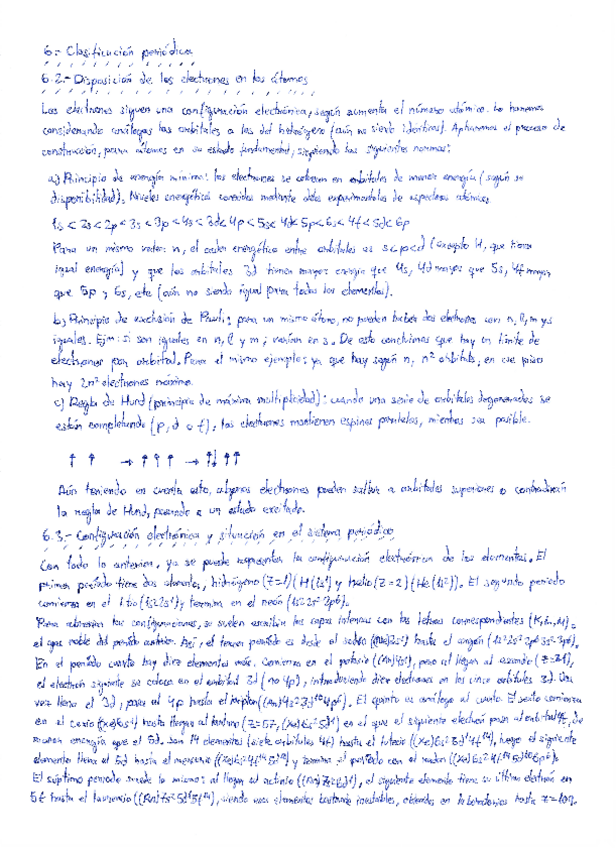 6.- Clasificación periódica
6.2.- Disposición de los electrones en los átomos
Los electrones siguen una configuración electrónica, según aumenta el número atómico. Lo haremos
considerando análogas los orbitales a los del hidrógeno (aún no siendo idénticos). Aplicaremos el proceso de
construcción, para átomos en su estado fundamental, siguiendo las siguientes normas:
a) Principio de energía mínima: los electrones se colocan en orbitales de menor energía (según su
disponibilidad). Niveles energéticos conocidos mediante datos experimentales de espectros atómicos.
1s < 2s < 2p < 3s < 3p < 4s < 3d < 4p < 5s < 4d < 5p < 6s < 4f < 5d < 6p
Para un mismo valor n, el orden energético entre orbitales es s<p<d (excepto H, que tiene
igual energía) y que los orbitales 3d tienen mayor energía que 4s, 4d mayor que 5s, 4f mayor
que 5p y 6s, etc (aún no siendo igual para todos los elementos).
b) Principio de exclusión de Pauli: para un mismo átomo, no pueden haber dos electrones con n, l, m y s
iguales. Ejm: si son iguales en n, l y m; varían en s. De esto concluimos que hay un límite de
electrones por orbital. Para el mismo ejemplo: ya que hay según n, n² orbitales, en ese piso
hay 2n² electrones máximo.
c) Regla de Hund (principio de máxima multiplicidad): cuando una serie de orbitales degenerados se
están completando (p, d o f), los electrones mantienen espines paralelos, mientras sea posible.
↑ ↑ → ↑ ↑ ↑ → ↑↓ ↑ ↑
Aún teniendo en cuenta esto, algunos electrones pueden saltar a orbitales superiores o contradecir
la regla de Hund, pasando a un estado excitado.
6.3.- Configuración electrónica y situación en el sistema periódico
Con todo lo anterior, ya se puede representar la configuración electrónica de los elementos. El
primer período tiene dos elementos, hidrógeno (Z=1) (H(1s¹) y helio (Z=2) (He(1s²)). El segundo período
comienza en el litio (1s²2s¹) y termina en el neón (1s²2s²2p⁶).
Para abreviar las configuraciones, se suelen escribir las capas internas con las letras correspondientes (K, L, M) o
el gas noble del período anterior. Así, el tercer período es desde el sodio ((Ne)3s¹) hasta el argón (1s²2s²2p⁶3s²3p⁶).
En el período cuarto hay diez elementos más. Comienza en el potasio ((Ar)4s¹), pero al llegar al escandio (Z=21),
el electrón siguiente se coloca en el orbital 3d (no 4p), introduciendo diez electrones en los cinco orbitales 3d. Una
vez lleno el 3d, pasa al 4p hasta el kriptón ((Ar)4s²3d¹⁰4p⁶). El quinto es análogo al cuarto. El sexto comienza
en el cesio ((Xe)6s¹) hasta llegar al lantano (Z=57, (Xe)6s²5d¹) en el que el siguiente electrón pasa al orbital 4f, de
menor energía que el 5d. Son 14 elementos (siete orbitales 4f) hasta el lutecio ((Xe)6s²5d¹4f¹⁴), luego el siguiente
elemento llena el 5d hasta el mercurio ((Xe)6s²4f¹⁴5d¹⁰) y termina el período con el radón ((Xe)6s²4f¹⁴5d¹⁰6p⁶).
El séptimo período sucede lo mismo: al llegar al actinio ((Rn)7s²6d¹), el siguiente elemento tiene su último electrón en
5f hasta el laurencio ((Rn)7s²6d¹5f¹⁴), siendo unos elementos bastante inestables, obtenidos en laboratorios hasta Z=109.